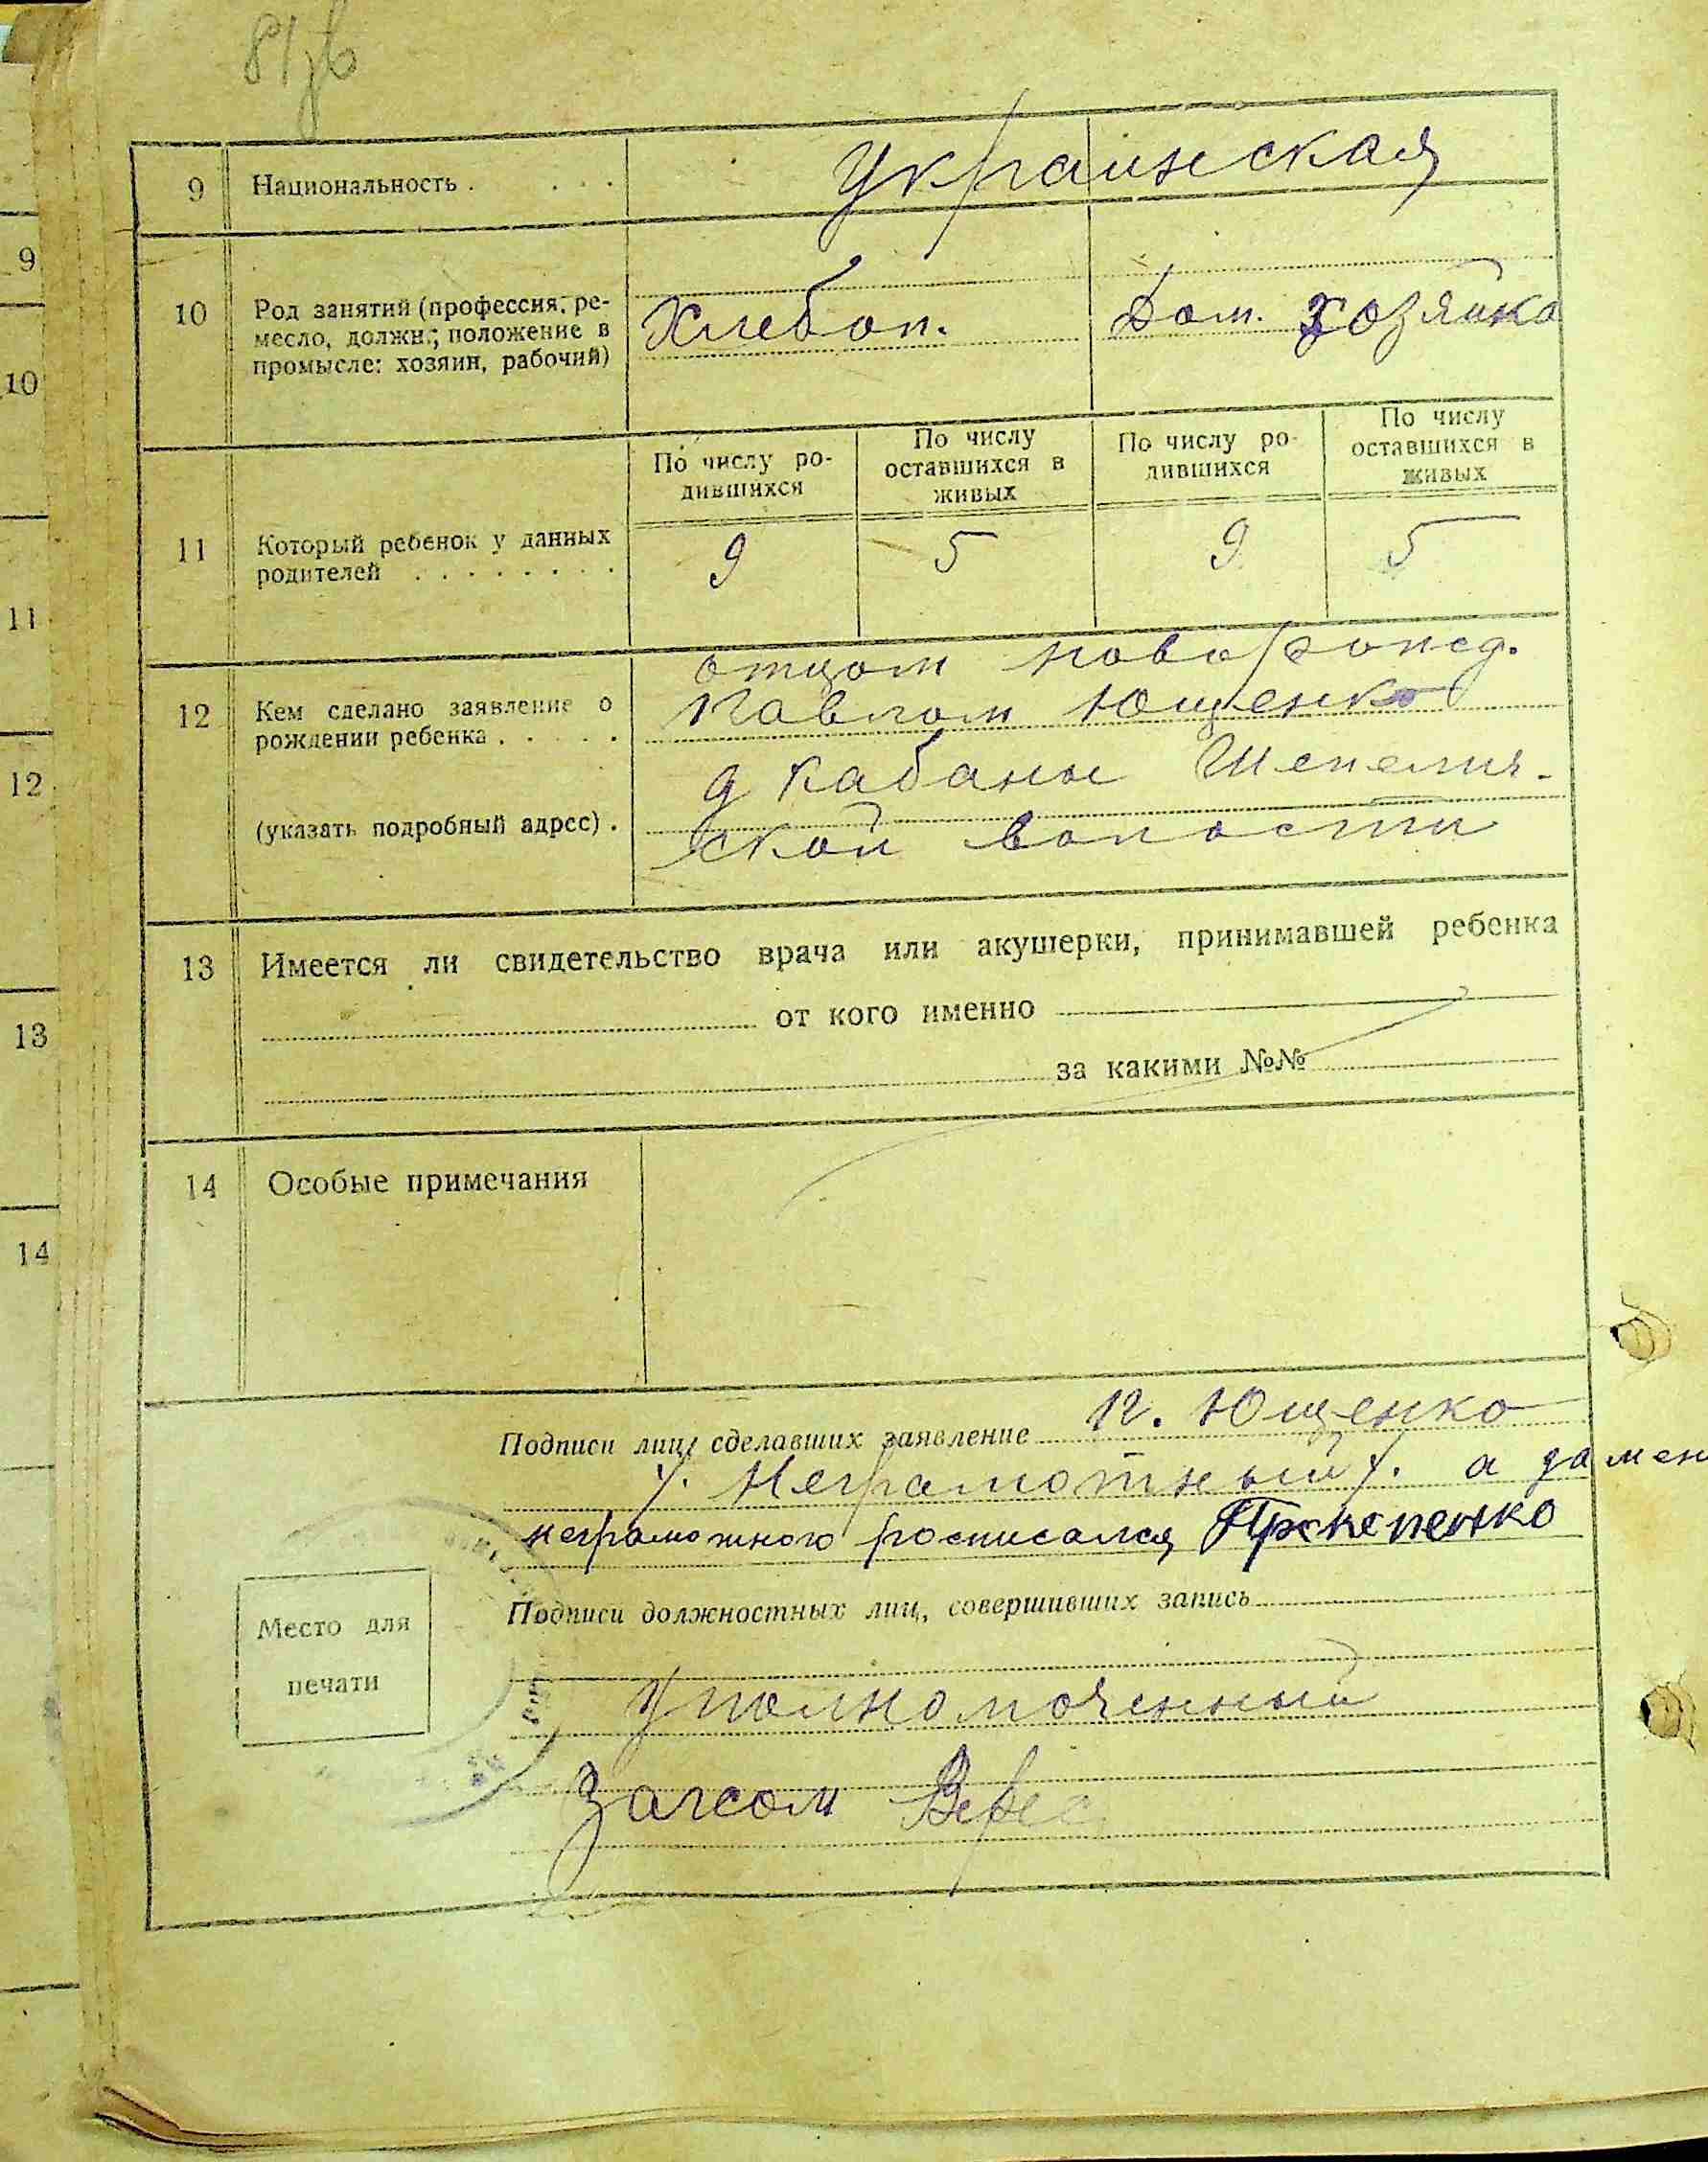 9 Национальность . . . . Украинская
10 Род занятий (профессия, ре-
месло, должн.; положение в
промысле: хозяин, рабочий)
Хлебоп. Дом. хозяйка
По числу ро-
дившихся
По числу
оставшихся в
живых
По числу ро-
дившихся
По числу
оставшихся в
живых
11 Который ребенок у данных
родителей . . . . . . . .
9 5 9 5
12 Кем сделано заявление о
рождении ребенка . . . . .
(указать подробный адрес) .
отцом новорожд.
Павлом Ющенко
д Кабаны Шепелич-
ской волости
13 Имеется ли свидетельство врача или акушерки, принимавшей ребенка
от кого именно
за какими №№
14 Особые примечания
Подписи лиц, сделавших заявление П. Ющенко
Неграмотный а за меня
неграмотного росписался
Подписи должностных лиц, совершивших запись
Место для
печати
Уполномоченный
Загсом Верес
9
10
11
12
13
14